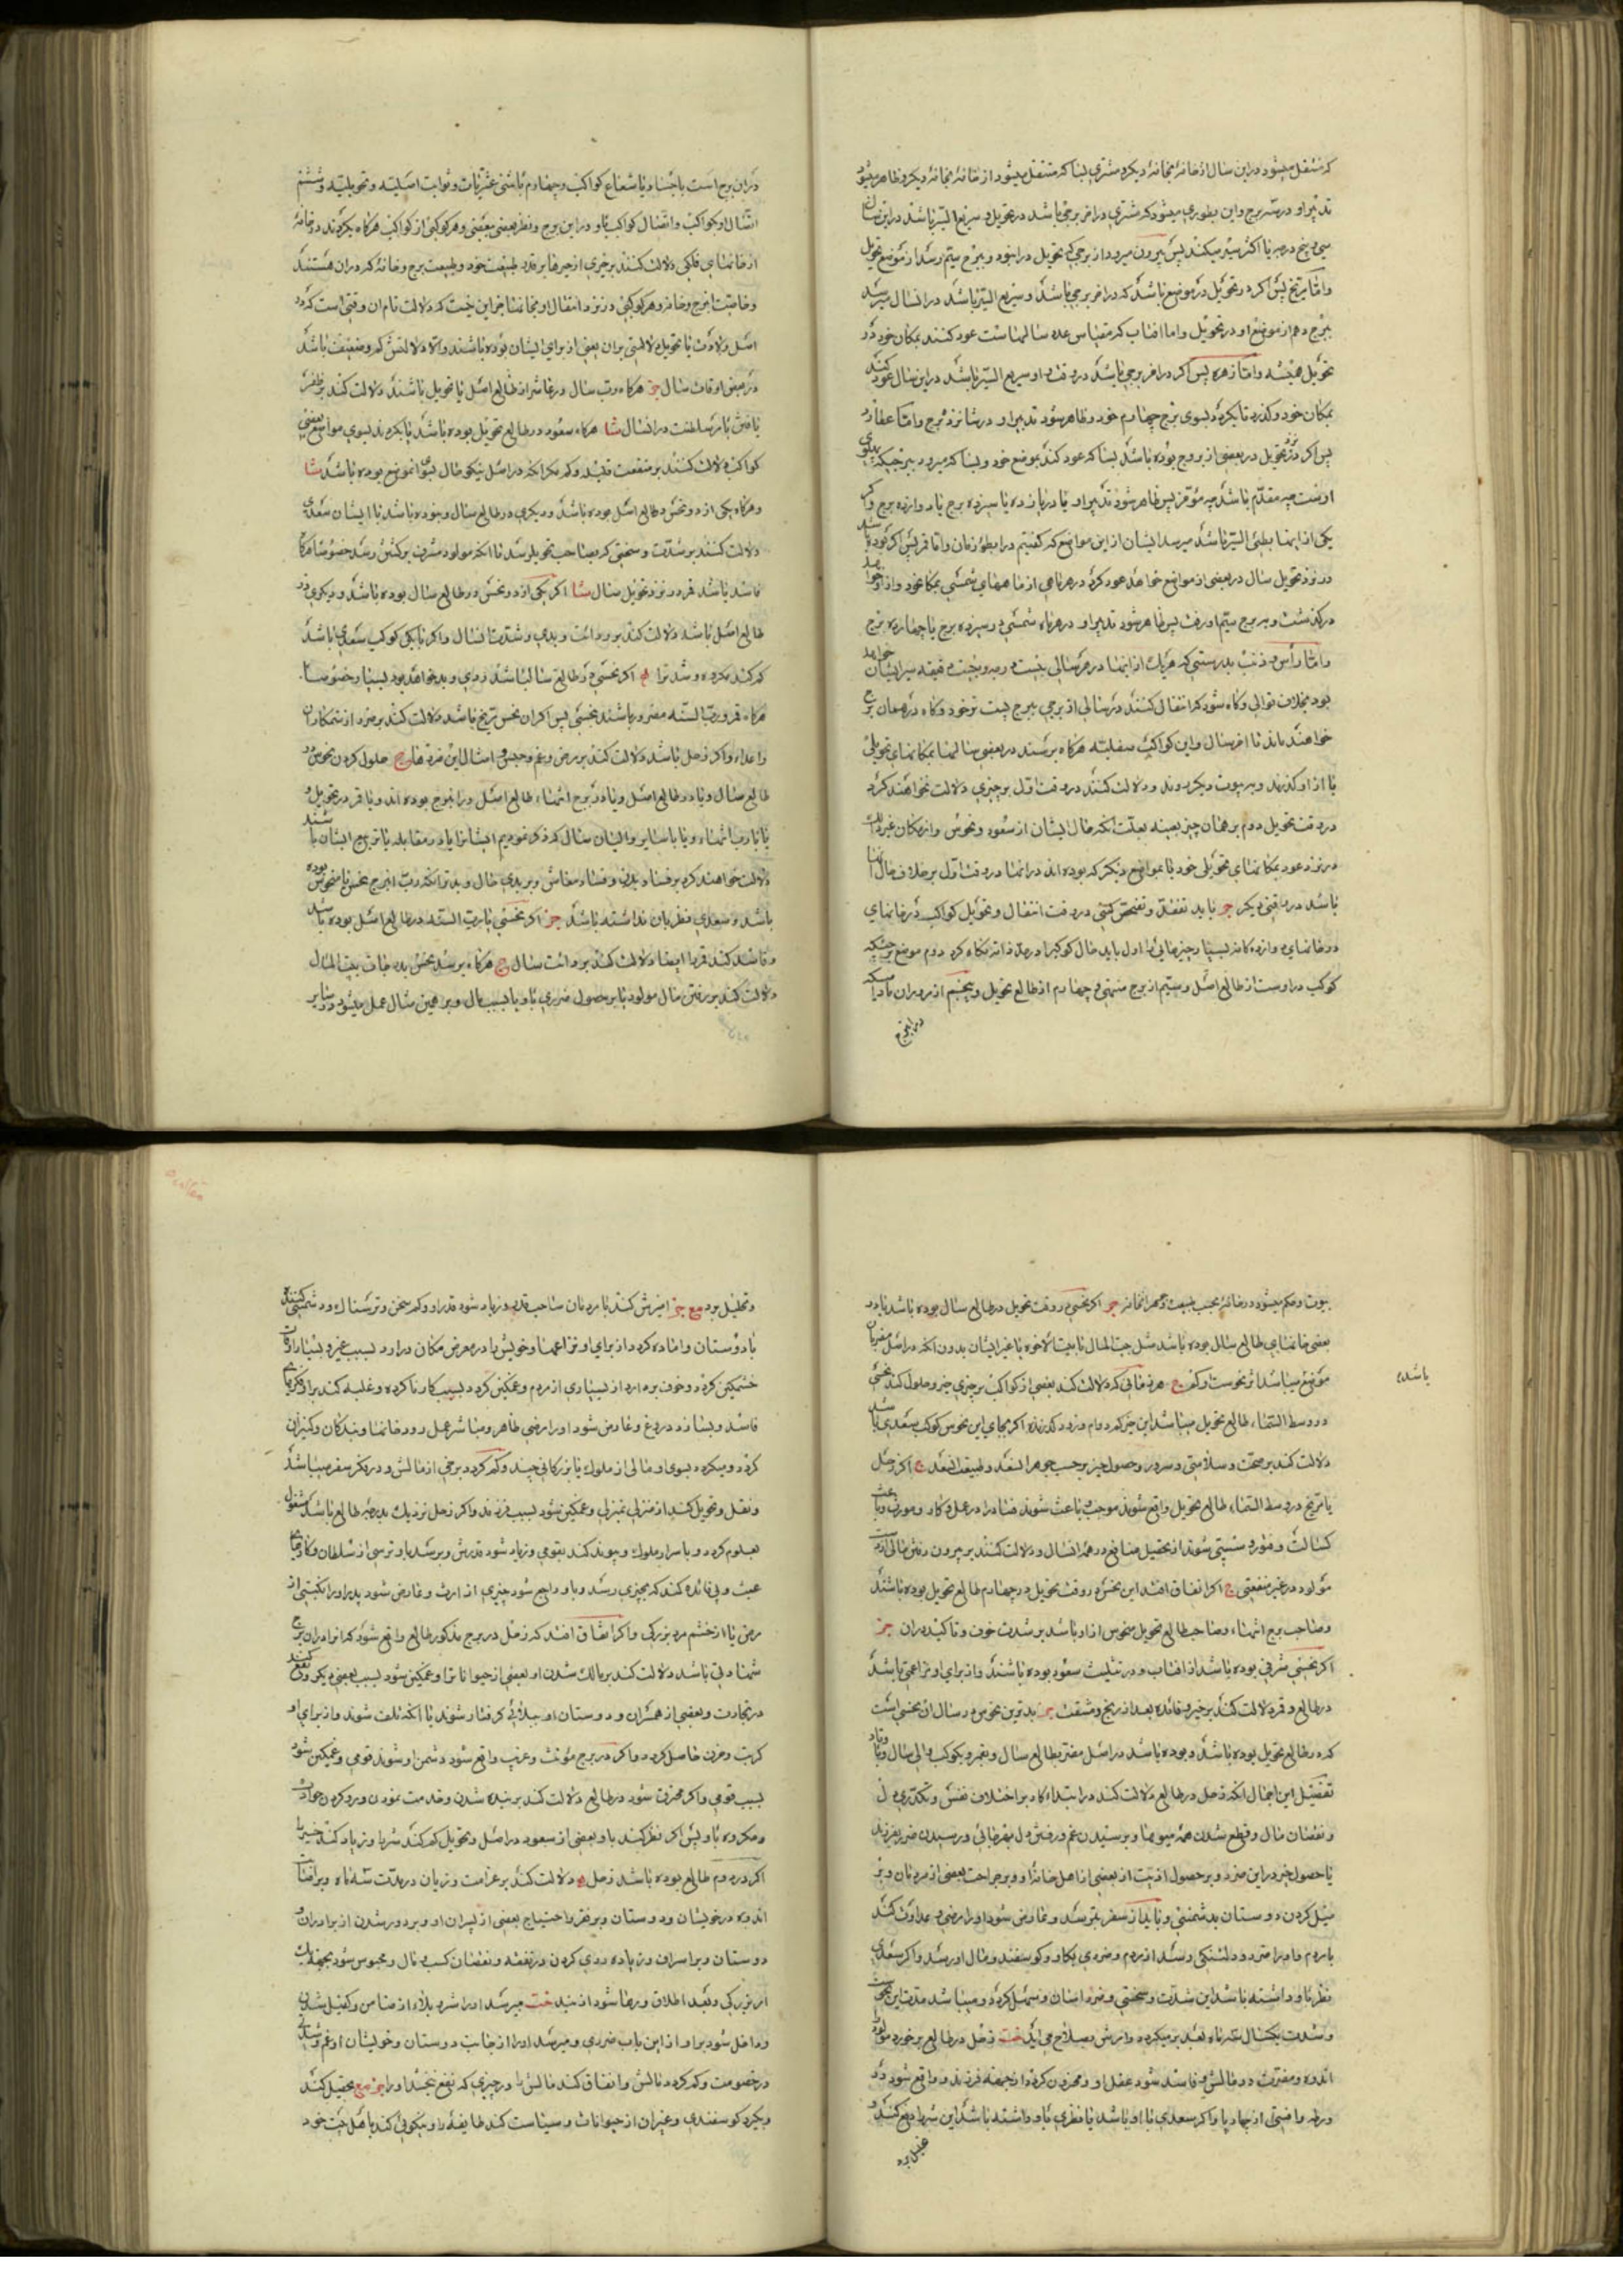 که منتقل میشود در این سال از خانه بخانه دیگر و مشتری بسا که منتقل میشود از خانه بخانه دیگر و ظاهر میشود
تدبیر او در سه برج و این بطوری میشود که مشتری در اخر برجی باشد در تحویل و سریع السیر باشد در این سال
سی و پنج درجه یا اکثر سیر میکند پس بیرون میرود از برجی که تحویل در او بود و ببرج سیم رسد از موضع تحویل
و اما مریخ پس اکر در تحویل در موضع باشد که در اخر برجی باشد و سریع السیر باشد در انسال میرسد
ببرج دهم از موضع او در تحویل و اما افتاب که مقیاس عدد سالهاست عود کنند بمکان خود در
تحویل همیشه و اما زهره پس اکر در اخر برجی باشد در وقت و او سریع السیر باشد در این سال عود کند
بمکان خود و کذرد تا بکردد بسوی برج چهارم خود و ظاهر شود تدبیر او در شانزده برج و اما عطارد
پس اکر در تحویل در بعضی از بروج بوده باشد بسا که عود کند بموضع خود و بسا که میرود ببرجیکه پهلوی
اوست چه مقدم باشد چه مؤخر پس ظاهر شود تدبیر او یا در یازده یا سیزده برج یا دوازده برج و اکر
یکی از اینها بطئی السیر باشد میرسد ایشان از این مواضع که کفتیم در ابطؤ زمان و اما قمر پس اکر بوده باشد
در نزد تحویل سال در بعضی از مواضع خواهد عود کرد در هر ماهی از ماههای شمسی بمکان خود و از او خواهد
درکذشت و ببرج سیم او رفت پس ظاهر شود تدبیر او در هر ماه شمسی در سیزده برج یا چهارده برج
و اما رأس و ذنب بدرستی که هر یک از اینها در هر سالی بیست درجه و بیست دقیقه سیر ایشان خواهد
بود بخلاف توالی و کاه شود که انتقال کنند در سالی از برجی ببرج پشت سر خود و کاه در همان برج
خواهند ماند تا اخر سال و این کواکب سفلیه هرکاه برسند در بعضی سالها بمکانهای تحویلی
یا از او کذرند و ببیوت دیکر روند و دلالت کنند در وقت اول بر چیزی دلالت نخواهند کرد
در وقت تحویل دوم بر همان چیز بعینه بعلت انکه حال ایشان از سعود و نحوس و از مکان غیر ذلک
در نزد عود بمکانهای تحویلی خود یا بمواضع دیکر که بوده اند در انها در وقت اول بر خلاف حال انها
باشد در وقتی دیکر جز باید تفقد و تفحص کنی در وقت انتقال و تحویل کواکب در خانهای
در خانهای دوازده کانه بسیار چیزها یرا اول باید حال کوکبرا در حد ذاته نکاه کرد دوم موضع برجیکه
کوکب در اوست از طالع اصل و سیم از برج منتهی و چهارم از طالع تحویل و پنجم از مروران یا دراینکه
در این برج
در این برج است باجساد یا شعاع کواکب و چهارم باثنی عشریات و ثوابت اصلیه و تحویلیه و ششم
اتصال او بکواکب و اتصال کواکب باو در این برج و نظر بعضی ببعضی و هر کوکبی از کواکب هرکاه بکردند در خانه
از خانهای فلکی دلالت کنند بر خیری از خیرها بر قدر طبیعت خود و طبیعت برج و خانه که در ان هستند
و خاصیت برج و خانه و هر کوکبی در نزد انتقال او بخانها جز این نیست که دلالت تام ان وقتی است که در
اصل ولادت یا تحویل دلالتی بر ان یعنی از برای ایشان بوده باشند و الا دلالتش کم و ضعیف باشد
در بعضی اوقات سال جز هرکاه رب سال در عاشر از طالع اصل یا تحویل باشند دلالت کند بر ظفر
یافتن یا بر سلطنت در انسال شا هرکاه سعود در طالع تحویل بوده باشد یا بکردند بسوی مواضع بعضی
کواکب دلالت کنند بر منفعت قلیله و کم مکر انکه در اصل نیکو حال بسوی انموضع بوده باشد شا
و هرکاه یکی از دو نحس در طالع اصل بوده باشد و دیکری در طالع سال و نبوده باشد با ایشان سعدی
دلالت کنند بر شدت و سختی که بصاحب تحویل رسد تا انکه مولود مشرف بر کشتن رسد خصوصا هرکاه
فاسد باشد قمر در نزد تحویل سال شا اکر یکی از دو نحس در طالع سال بوده باشد و دیکری در
طالع اصل باشد دلالت کند بر ردائت و بدی و شدت انسال و اکر با یکی کوکب سعدی باشد
کم کند مکروه و شدترا اکر نحسی در طالع سال باشد ردی و بد خواهد بود بسیار خصوصا
هرکاه قمر و رب السنه مضرور باشند بنحسی پس اکر ان نحس مریخ باشد دلالت کند بر ضرر از ستمکاران
و اعداء و اکر زحل باشد دلالت کند بر مرض و غم و حبس و امثال این ضررها ج حلول کردن نحوس در
طالع سال و یا در طالع اصل و یا در برج انتهاء طالع اصل در انبرج بوده اند و یا قمر در تحویل و
یا با رب انتهاء و یا با سایر والیان سال که ذکر نمودیم ایشانرا یا در مقابله یا تربیع ایشان باشند
دلالت خواهند کرد بر فساد بدن و فساد معاش و بر بدی حال و بدتر انکه رب انبرج نحس یا منحوس بوده
باشد و سعدی نظر بان نداشته باشد جز اکر نحسی یا رب السنه در طالع اصل بوده باشد
و فاسد کند قمر را ایضا دلالت کند بر ردائت سال ج هرکاه برسد نحس بدرجات بیت المال
دلالت کند بر رفتن مال مولود یا بر حصول ضرری باو یا بسبب مال و بر همین مثال عمل میشود در سایر
بیوت و حکم میشود در خانه بحسب طبیعت و جوهر انخانه جز اکر نحسی در وقت تحویل در طالع سال بوده باشد یا در
بعضی خانهای طالع سال بوده باشد مثل بیت المال یا بیت الاخوه یا غیر ایشان بدون انکه در اصل مضر بان
موضع میباشد اثر نحوست او کم ج هر زمانی که دلالت کند بعضی از کواکب بر چیزی خیر و حلول کند نحسی
در وسط السماء طالع تحویل میباشد این خیر کم دوام و زود کذرنده اکر بجای این نحوس کوکب سعدی باشد
دلالت کند بر صحت و سلامتی و سرور و حصول خیر بر حسب جوهر السعد و طبیعت انسعد ع اکر زحل
یا مریخ در وسط السماء طالع تحویل واقع شوند موجب و باعث شوند فساد را در عمل و کار و مورث و باعث
کسالت و فتور و سستی شوند از تحصیل منافع در همه انسال و دلالت کنند بر بیرون رفتن مالی از دست
مولود در غیر منفعتی ج اکر اتفاق افتد این نحس در وقت تحویل در چهارم طالع تحویل بوده باشند
و صاحب برج انتهاء و صاحب طالع تحویل منحوس از او باشد بر شدت خوف و تاکید در ان جز
اکر نحسی شرقی بوده باشد از افتاب و در تثلیث سعود بوده باشند و از برای او مزاعمتی باشد
در طالع و قمر دلالت کند بر خیر و فائده بعد از رنج و مشقت جز بدترین نحوس در سال ان نحسی است
که در طالع تحویل بوده باشد و بوده باشد در اصل مضر بطالع سال و بقمر و بکوکب والی سال و باو تاد
تفصیل این اجمال انکه زحل در طالع دلالت کند در ابتداء کار بر اختلاف نفس و تکدر دل
و نقصان مال و قطع شدن همه میوها و برسیدن غم و رفتن دل بهر جائی و رسیدن ضرر بفرزند
یا حصول خیر در این ضرر و بر حصول اذیت از بعضی از اهل خانه او و بر جراحت بعضی از مردمان و بر
میل کردن دوستان بدشمنی و باید از سفر بترسد و عارض شود او را مرضی و عداوت کند
با مردم و او را ضرر و دلتنکی رسد از مردم و ضرری بکاو و کوسفند و مال او رسد و اکر سعدی
نظر باو داشته باشد این شدت و سختی و ضرر اسان و سهل کردد و میباشد مدت این نحوست
و شدت یکسال سه ماه بعد بر میکردد و امرش بصلاح می اید خت زحل در طالع بر خورد مولود
اندوه و مضرت در مالش و فاسد شود عقل او و محزون کردد از جهة فرزند و واقع شود در
ورطه و ضیق از چهارپا و اکر سعدی با او باشد یا نظری باو داشته باشد این شرها دفع کند و
باشد
و تحلیل برد مع جز امیزش کنند با مردمان صاحب قدر و زیاد شود قدر او و کم سخن و ترسناک و دشمنی کنند
با دوستان و اماده کردد از برای او نزاعها و خویش را در معرض مکان در اورد بسبب غیر و بسیار اوقات
خشمکین کردد و خوف برد از بسیاری از مردم و غمکین کردد بسبب کار ناکرده و غلبه کند بر او فکرهای
فاسد و بسا زند دروغ و عارض شود او را مرضی ظاهر و مباشر عمل رود خانها و بندکان و کنیزان
کردد و میکردد بسوی او مالی از ملوک یا بزرکانی چند و کم کردد برخی از مالش و در فکر سفر میباشد
و نقل و تحویل کند از منزلی بمنزلی و غمکین شود بسبب فرزند و اکر زحل نزدیک بدرجه طالع باشد مشغول
بعلوم کردد و باسرار ملوک و پیوند کند بقومی و زیاد شود قدرش و برسد باو ترسی از سلطان و کارهای
عبث و بی فائده کند که بچیزی رسد و باو راجع شود چیزی از ارث و عارض شود پدر او را نکبتی از
مرض یا از خشم مرد بزرکی و اکر اتفاق افتد که زحل در برج مذکور طالع واقع شود که انوا در ان برج
شهادتی باشد دلالت کند بر هالک شدن او بعضی از حیواناترا و غمکین شود بسبب بعضی دیکر و نفع کند
در تجارت و بعضی از همسران و دوستان او ببلائی کرفتار شوند تا انکه تلف شوند و از برای او
کربت و حزن حاصل کردد و اکر در برج مؤنث و غریب واقع شود دشمن او شوند قومی و غمکین شود
بسبب قومی و اکر محترق شود در طالع دلالت کند بر بنده شدن و خدمت نمودن و رو کردن حوادث
و مکروه باو پس اکر نظر کند باو بعضی از سعود در اصل و تحویل کم کند شر را و زیاد کند خیر را
اکر در دوم طالع بوده باشد زحل دلالت کند بر غرامت و زیان در مدت سه ماه و بر اصابت
اندوه در خویشان و دوستان و بر فقر و احتیاج بعضی از پسران او و بر دور شدن از برادران و
دوستان و بر اسراف و زیاده روی کردن در نفقه و نقصان کسب و مال و محبوس شود بجهة یک
امر بزرکی و بعد اطلاق و رها شود از بند خت میرسد او را شر و بلاء از ضامن و کفیل شدن
و داخل شود بر او از این باب ضرری و میرسد او را از جانب دوستان و خویشان او غم و شدتی
در خصومت و کم کردد مالش و انفاق کند مالش را در چیزی که نفع نبخشد او را جز مع تحصیل کند
و بکرد کوسفندی و غیر ان از حیوانات و سیاست کند طایفه را و نیکوئی کند باهل بیت خود